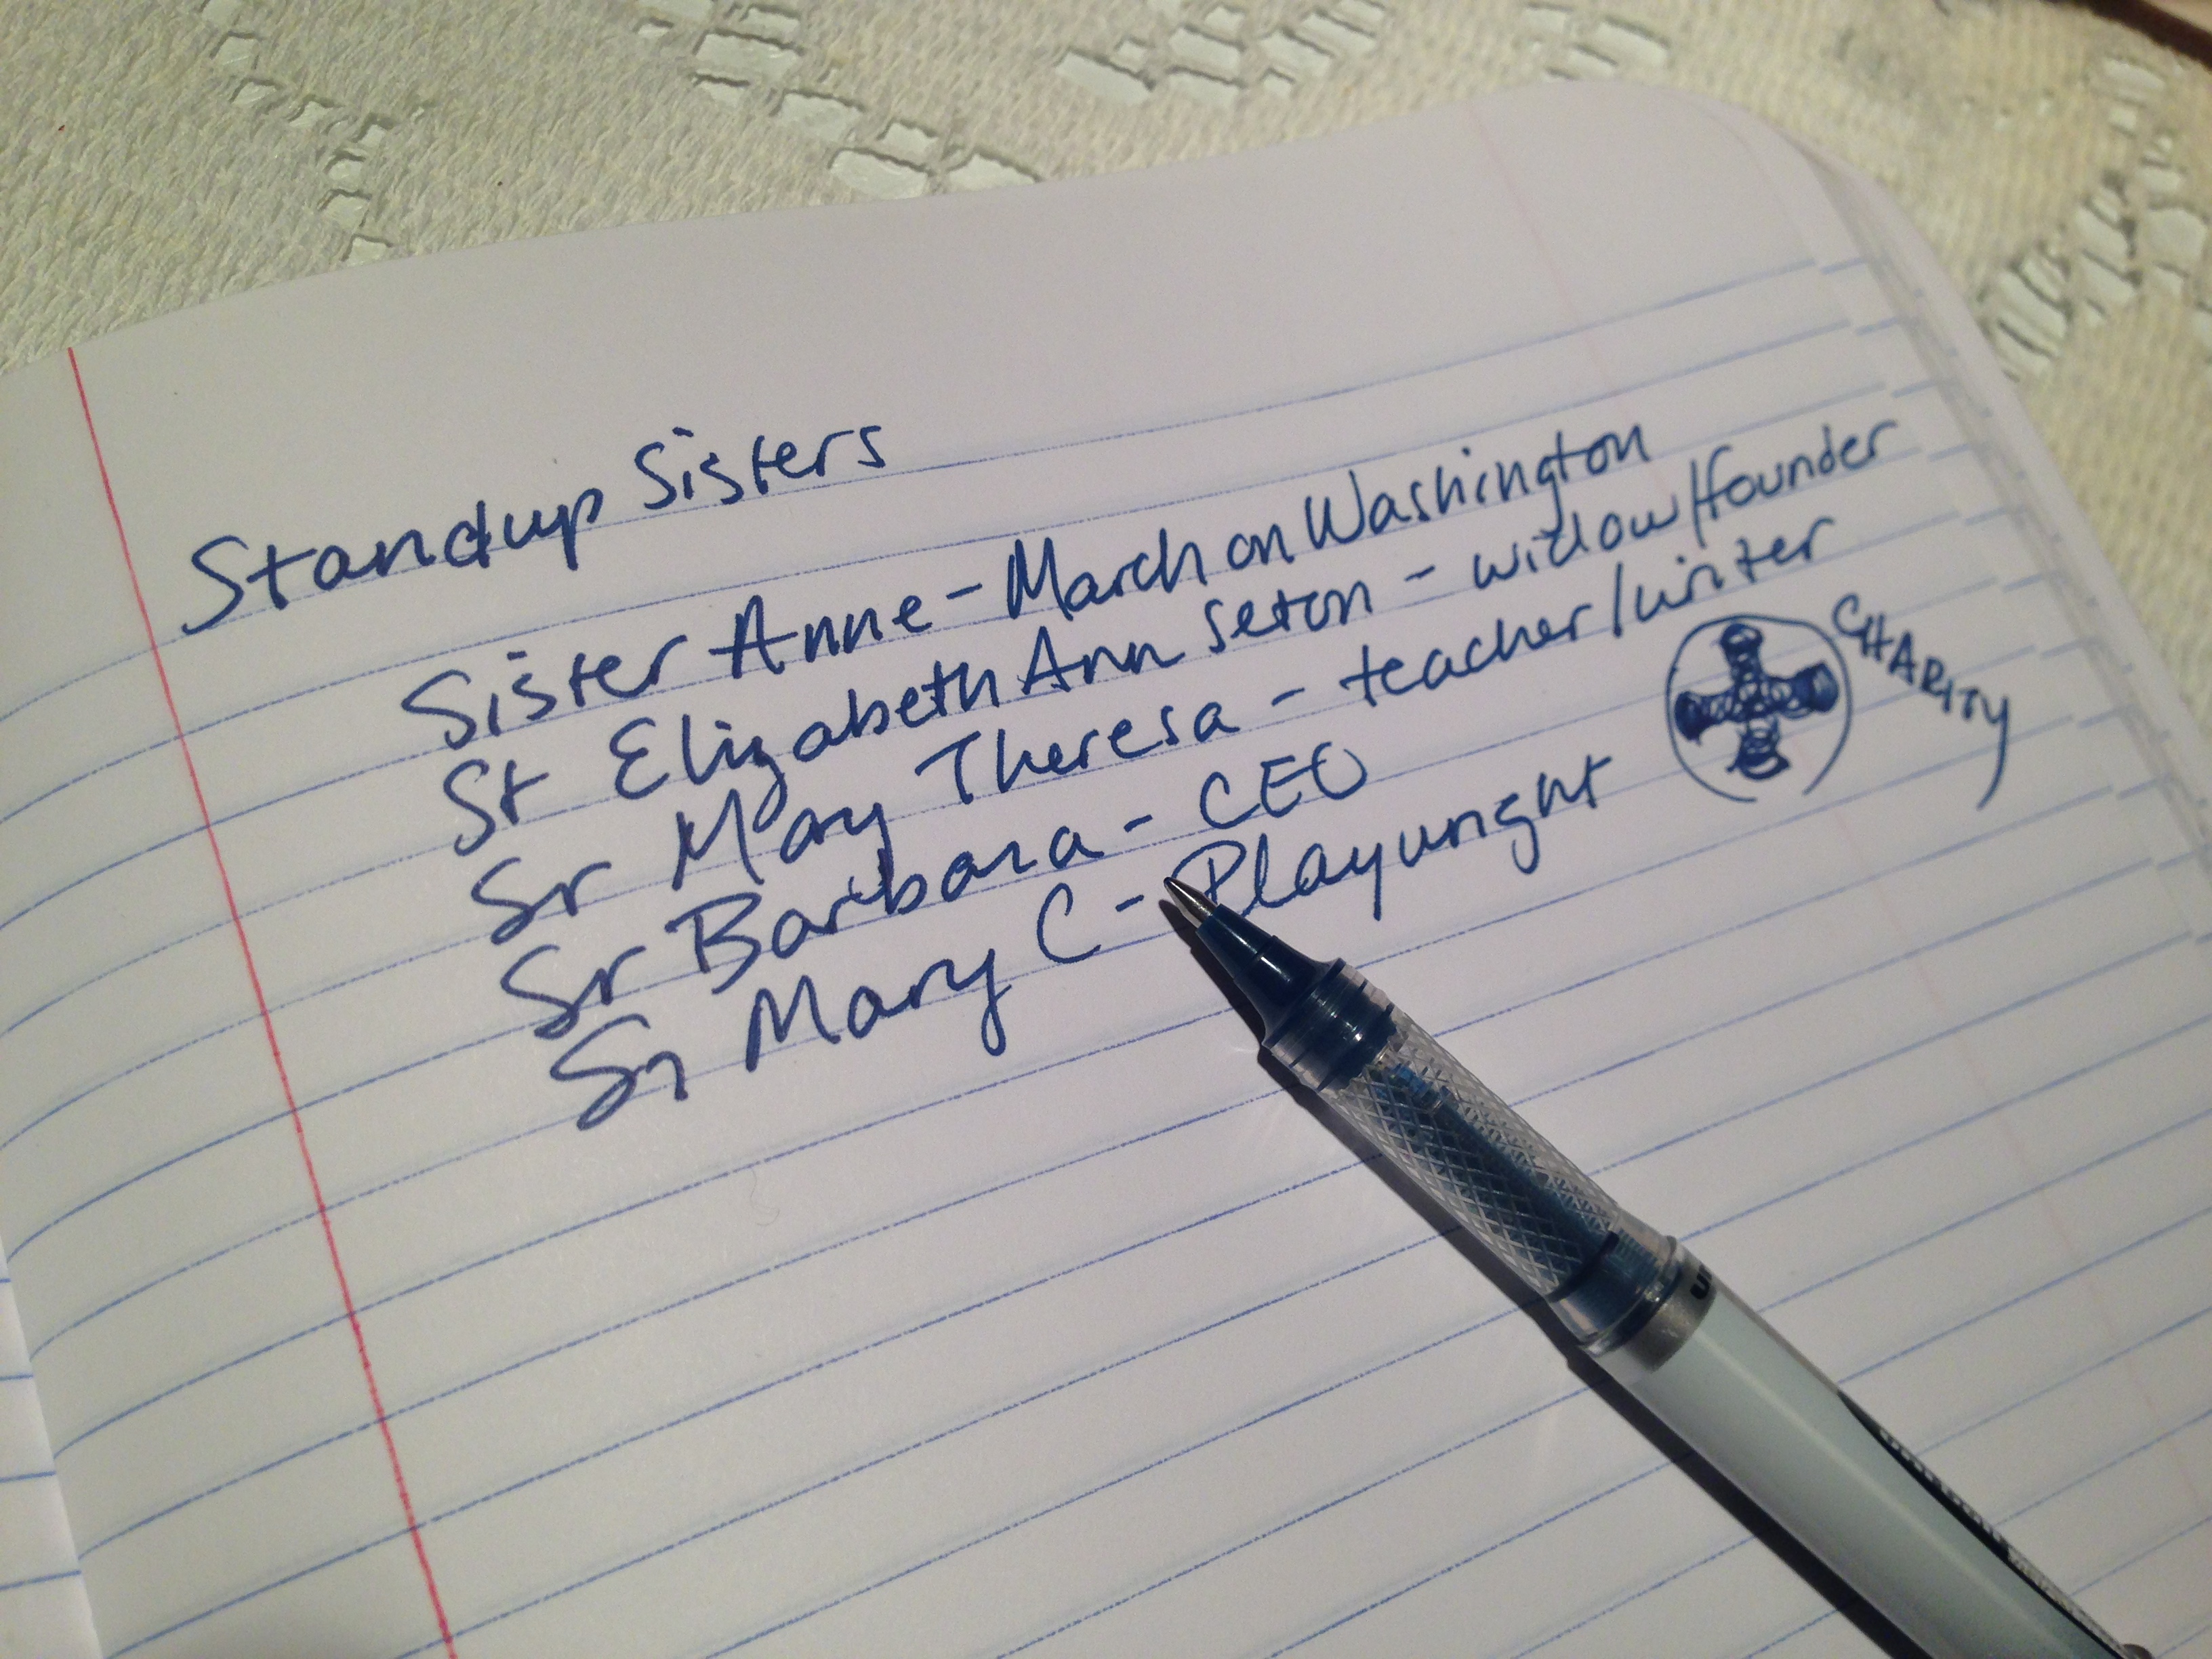 Standup Sisters
Sister Anne - March on Washington
St Elizabeth Ann Seton - widow/founder
Sr Mary Theresa - teacher/writer
Sr Barbara - CEO
Sr Mary C - Playwright
CHARITY